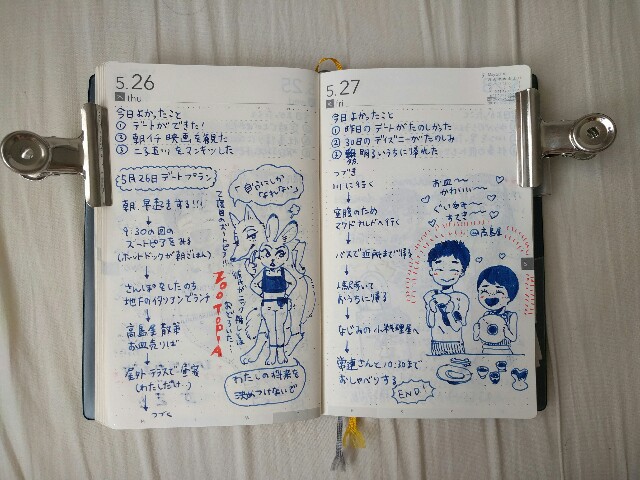 5.26
thu
今日よかったこと
① デートができた!
② 朝イチ映画を観た
③ 二子玉川をマンキツした
5月26日デートプラン
朝、早起きする!!!
↓
9:30の回の
ズートピアをみる
(ホットドックが朝ごはん)
↓
さんぽをしたのち
地下のイタリアンでランチ
↓
高島屋散策
お皿売りば
↓
屋外テラスで昼寝
(わたしだけ…)
↓
つづく
「自分にしか
なれない」
2度目のズートピア!!
ZOOTOPIA
わたしの将来を
決めつけないで
5.27
fri
今日よかったこと
① 昨日のデートがたのしかった
② 30日のディズニーがたのしみ
③ 明るいうちに帰れた
つづき
川に行く
↓
空腹のため
マクドナルドへ行く
↓
バスで近所まで帰る
↓
おうちに帰る
↓
なじみの小料理屋へ
↓
常連さんと10:30まで
おしゃべりする
END
お皿〜
かわいい〜
ぐいのみ〜
すてき〜
@高島屋